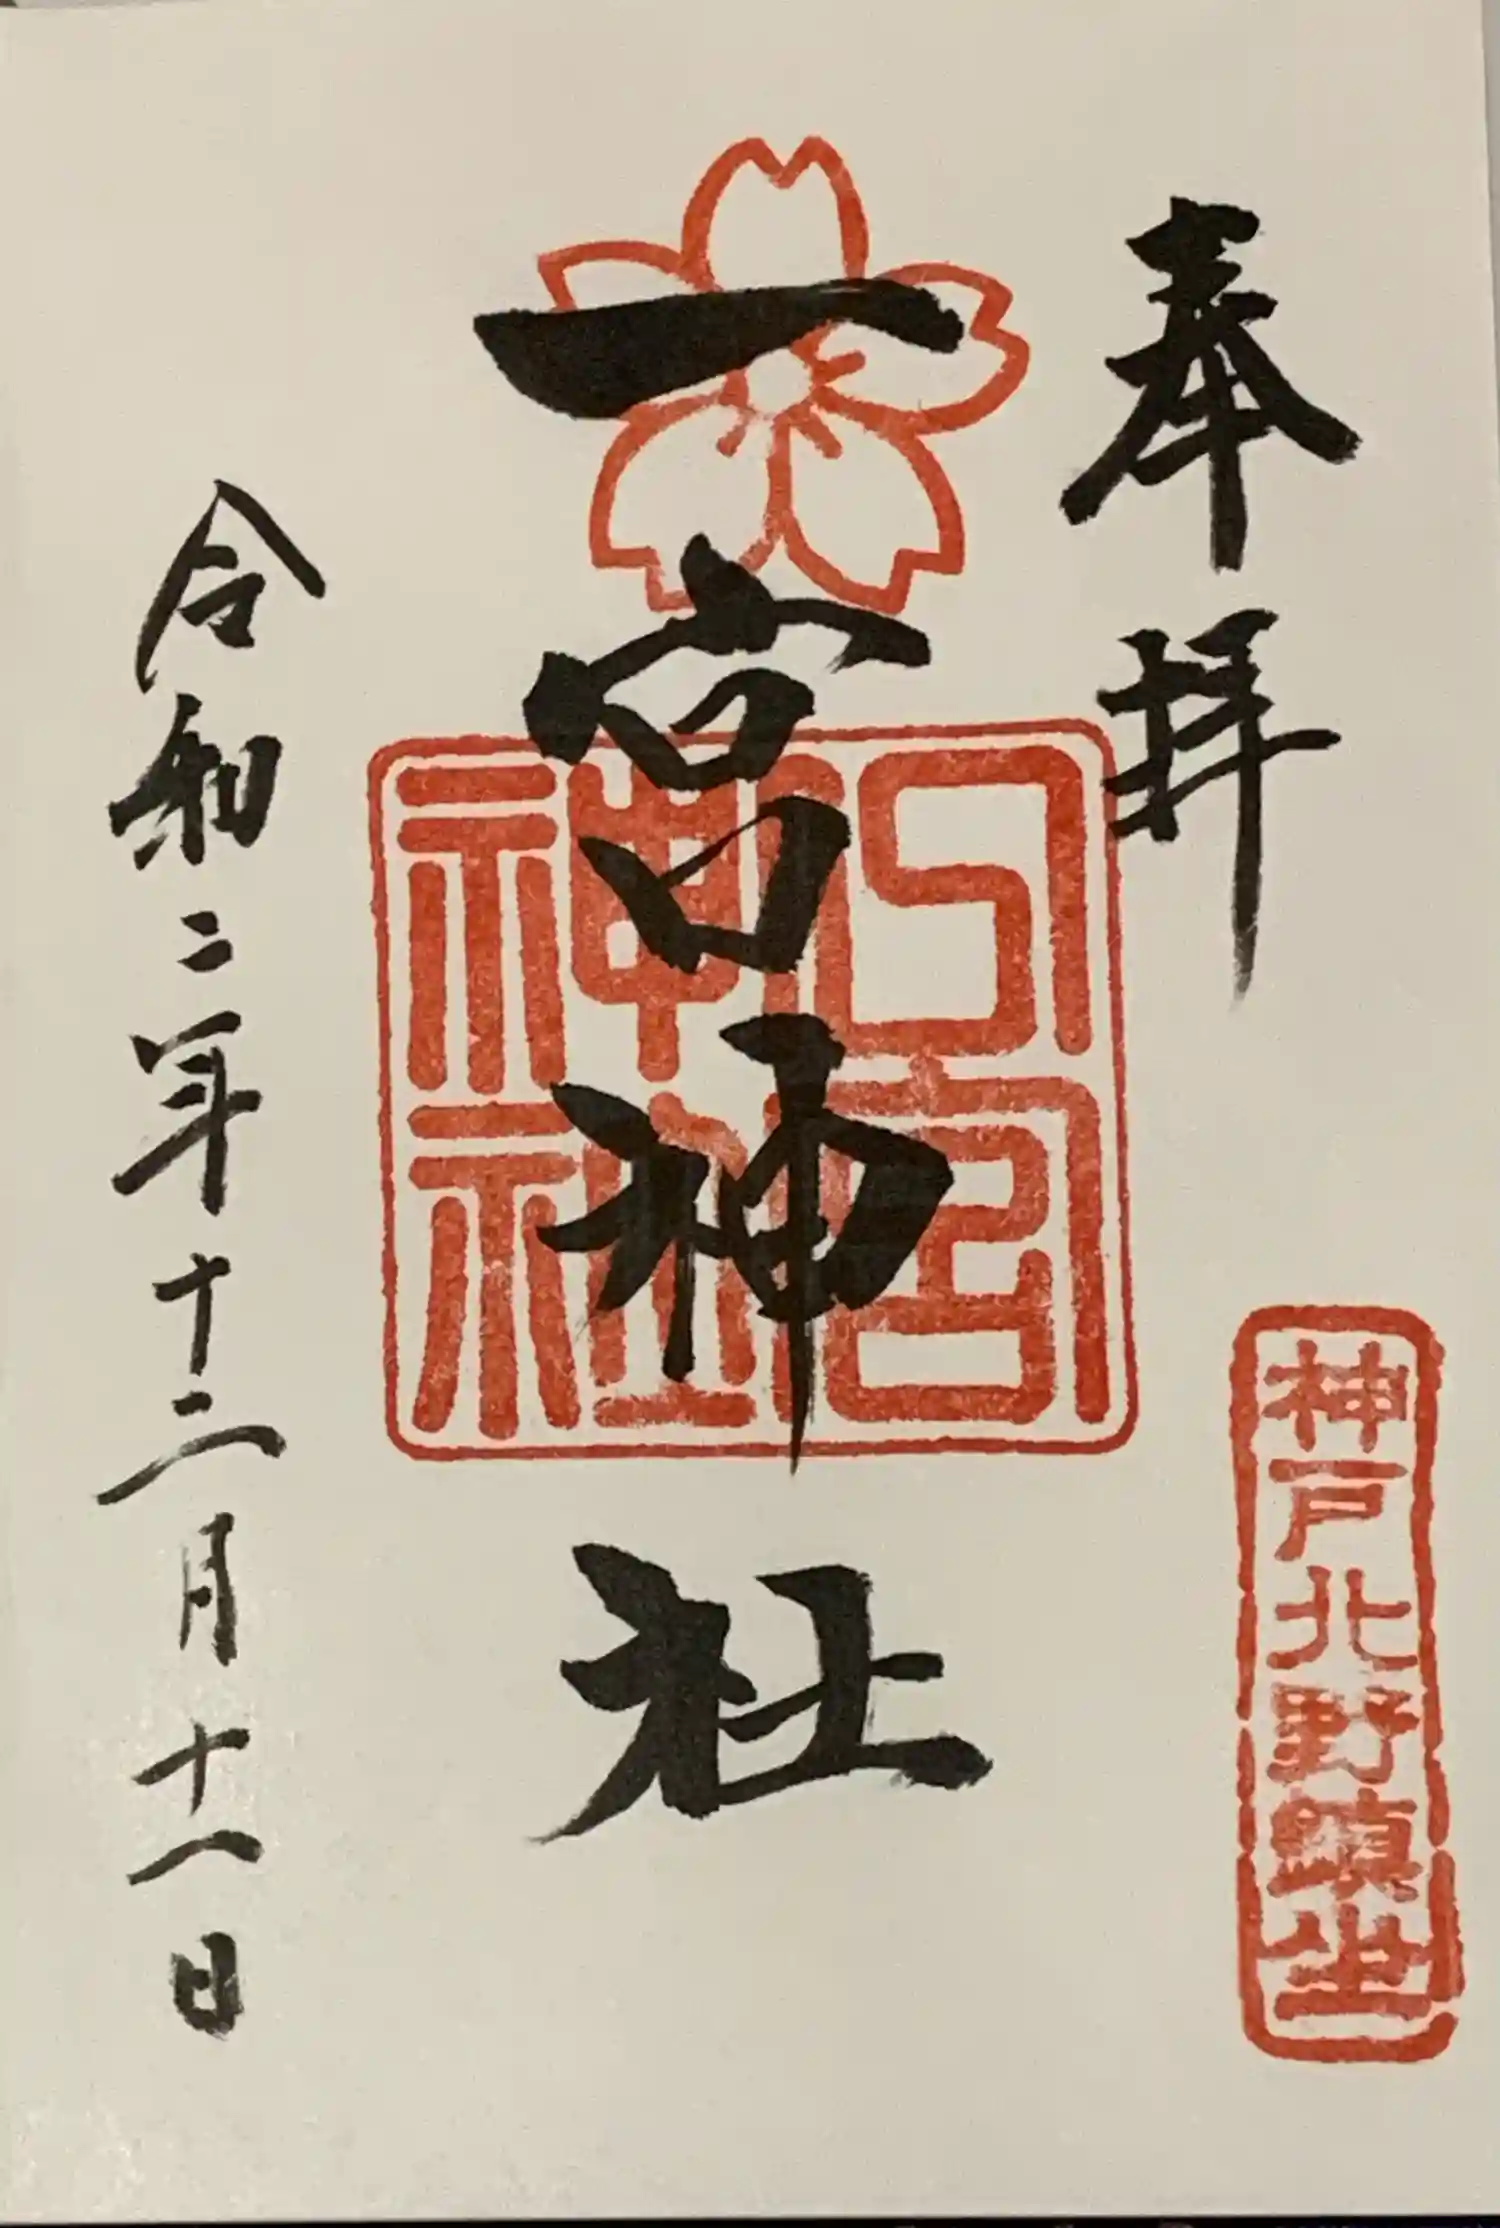 奉拝
神戸北野鎮坐
一宮神社
一宮神社
令和二年十二月十一日